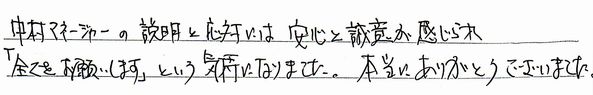 中村マネージャーの説明と応対には安心と誠意が感じられ
「全てをお願いします」という気持になりました。本当にありがとうございました。